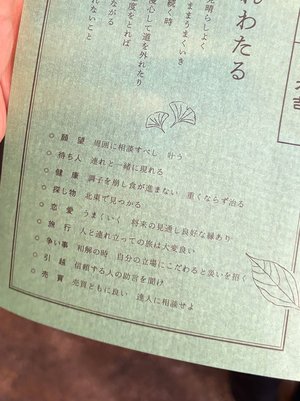 れわたる
晴らしよく
ままうまくいき
続く時
慢心して道を外れたり
度をとれば
ながる
れないこと
○ 願望 周囲に相談すべし 叶う
○ 待ち人 連れと一緒に現れる
○ 健康 調子を崩し食が進まない 重くならず治る
○ 探し物 北東で見つかる
○ 恋愛 うまくいく 将来の見通し良好な縁あり
○ 旅行 人と連れ立っての旅は大変良い
○ 争い事 和解の時 自分の立場にこだわると災いを招く
○ 引越 信頼する人の助言を聞け
○ 売買 売買ともに良い 達人に相談せよ